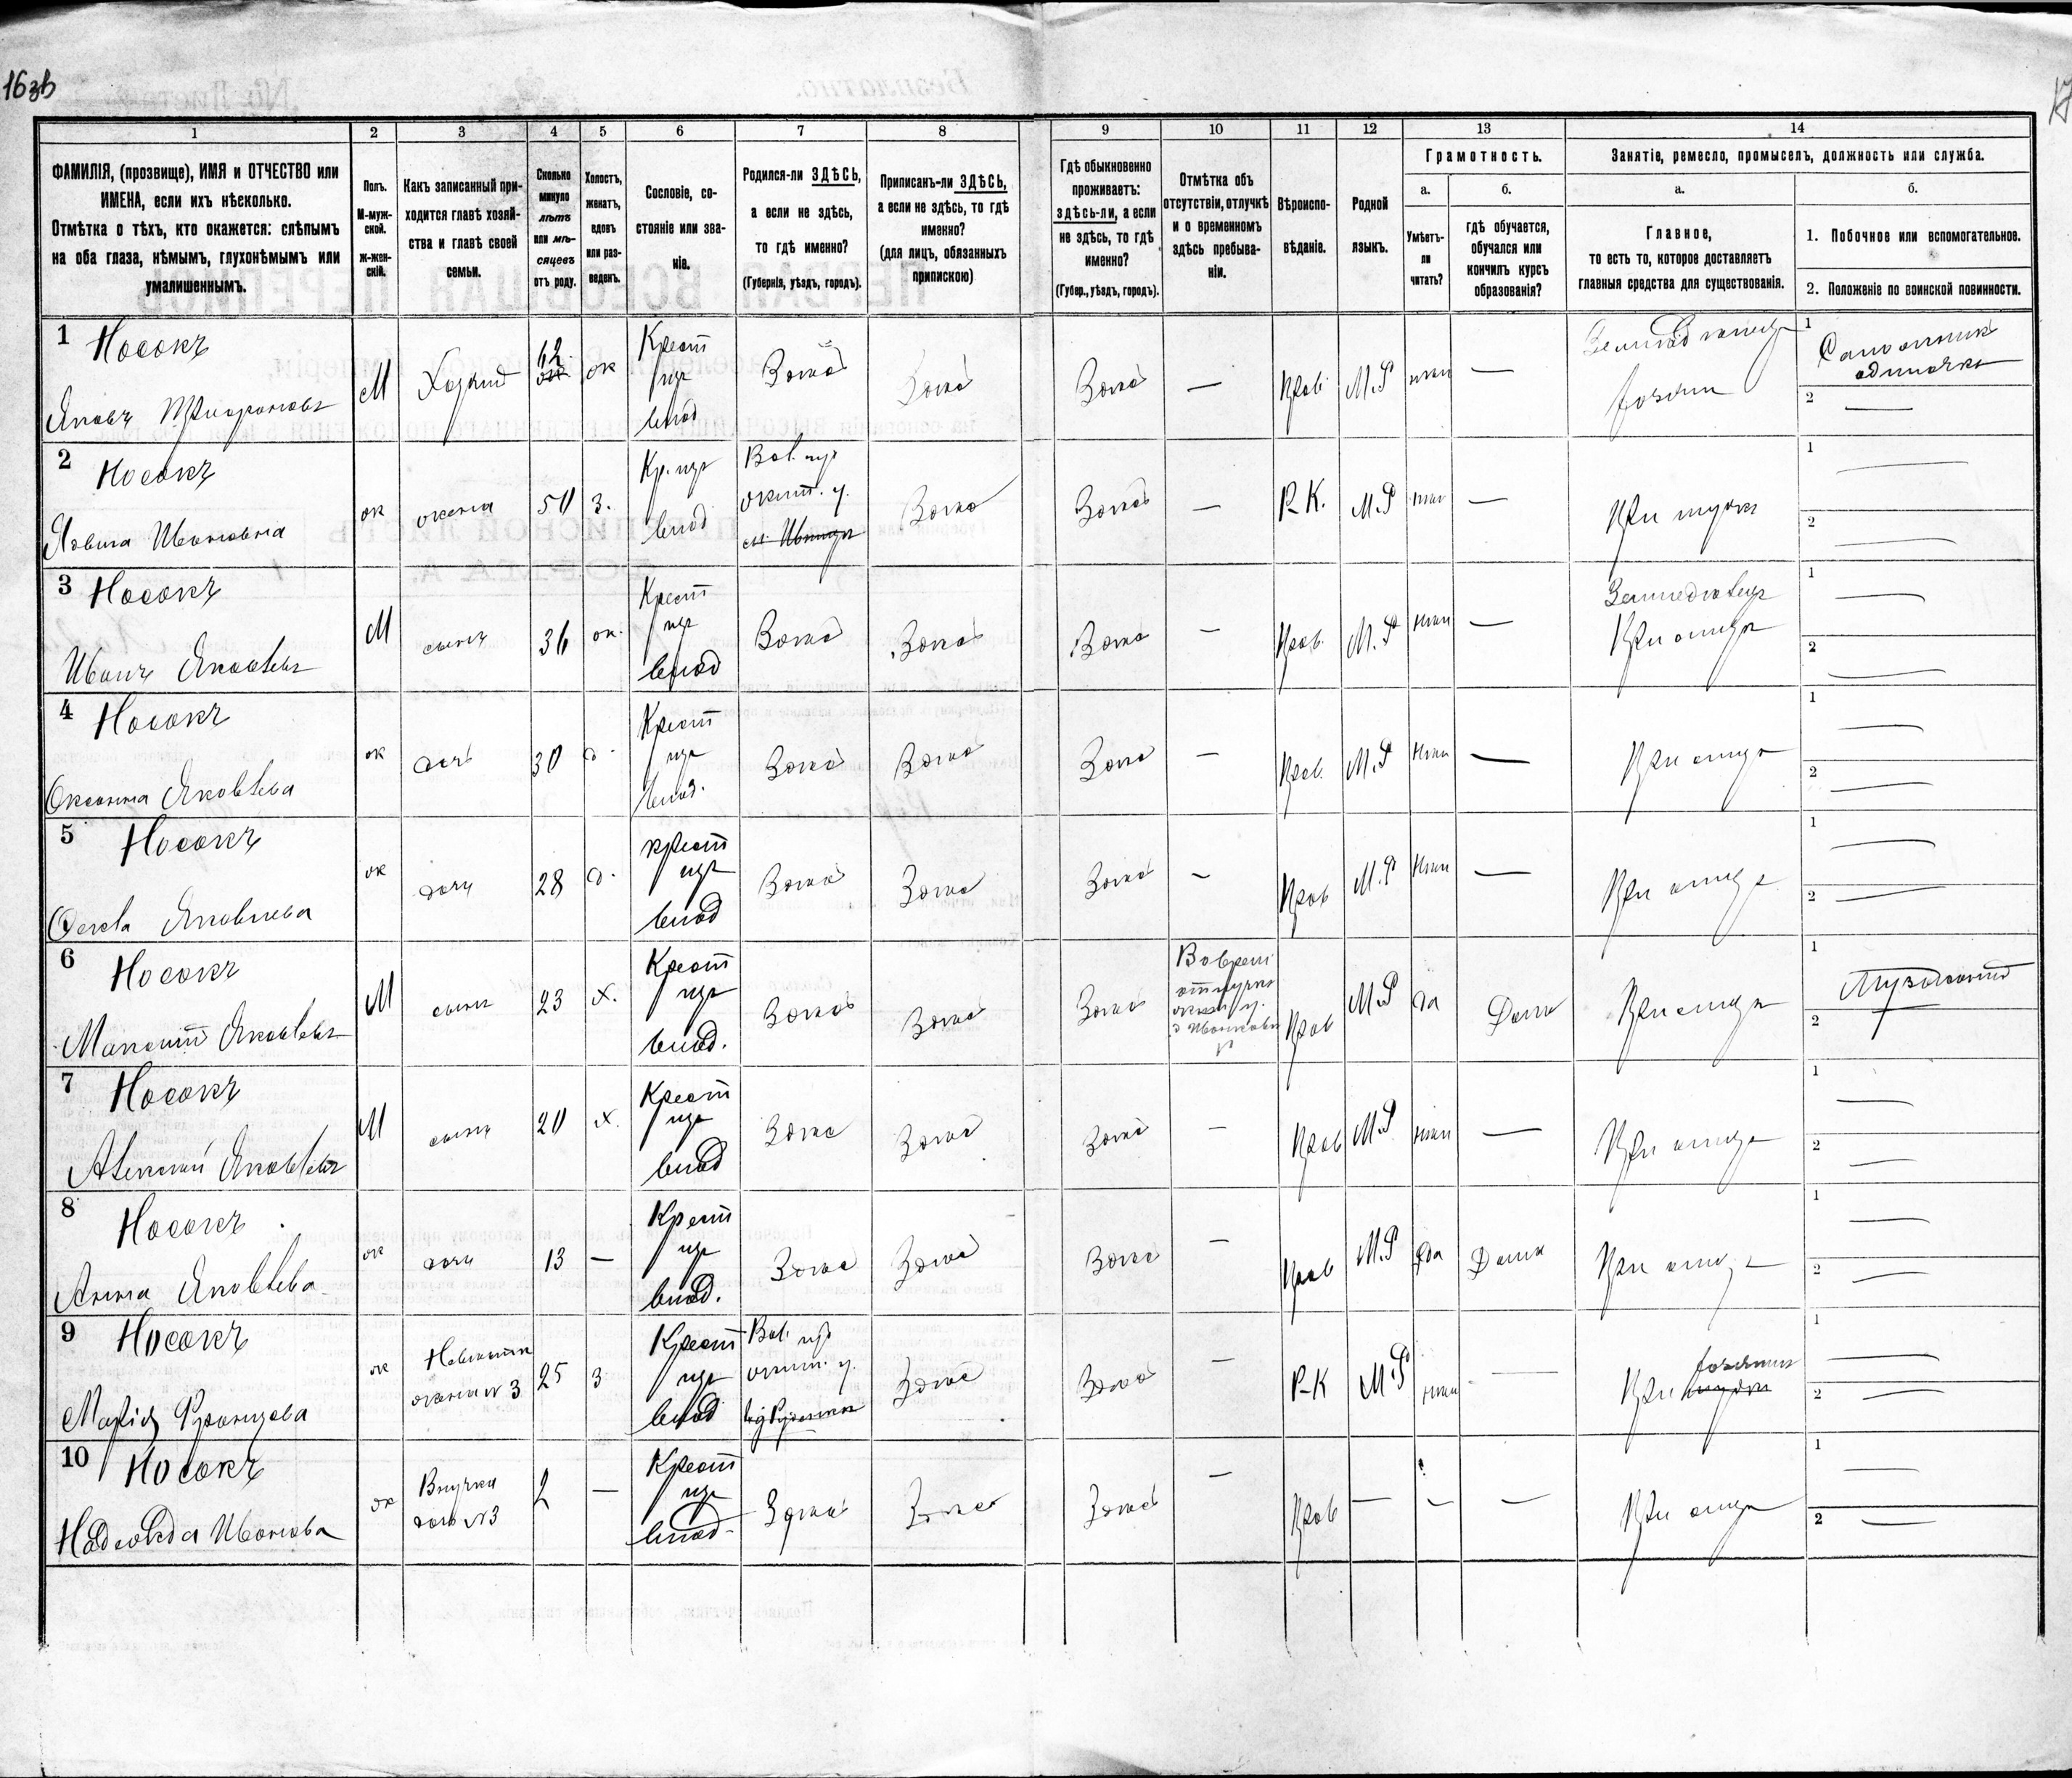 163b
17
1 2 3 4 5 6 7 8 9 10 11 12 13 14
ФАМИЛІЯ, (прозвище), ИМЯ и ОТЧЕСТВО или
ИМЕНА, если ихъ нѣсколько.
Отмѣтка о тѣхъ, кто окажется: слѣпымъ
на оба глаза, нѣмымъ, глухонѣмымъ или
умалишеннымъ.
Полъ.
М-муж-
ской.
ж-жен-
скій.
Какъ записанный при-
ходится главѣ хозяй-
ства и главѣ своей
семьи.
Сколько
минуло
лѣтъ
или мѣ-
сяцевъ
отъ роду.
Холостъ,
женатъ,
вдовъ
или раз-
веденъ.
Сословіе, со-
стояніе или зва-
ніе.
Родился-ли ЗДѢСЬ,
а если не здѣсь,
то гдѣ именно?
(Губернія, уѣздъ, городъ).
Приписанъ-ли ЗДѢСЬ,
а если не здѣсь, то гдѣ
именно?
(для лицъ, обязанныхъ
припискою)
Гдѣ обыкновенно
проживаетъ:
здѣсь-ли, а если
не здѣсь, то гдѣ
именно?
(Губер., уѣздъ, городъ).
Отмѣтка объ
отсутствіи, отлучкѣ
и о временномъ
здѣсь пребыва-
ніи.
Вѣроиспо-
вѣданіе.
Родной
языкъ.
Грамотность.
а. б.
Умѣетъ-
ли
читать?
гдѣ обучается,
обучался или
кончилъ курсъ
образованія?
Занятіе, ремесло, промыселъ, должность или служба.
а. б.
Главное,
то есть то, которое доставляетъ
главныя средства для существованія.
1. Побочное или вспомогательное.
2. Положеніе по воинской повинности.
1 Носокъ
Яковъ
М Хозяинъ 62 ж Крест
изъ
влад
Здѣсь Здѣсь Здѣсь — Прав. М.Р нѣтъ —
хозяинъ
1
2 —
2 Носокъ
Ивановна
ж жена 50 З. Кр. изъ
влад
Вол. губ
Жит. у.
Здѣсь Здѣсь — Р-К. М.Р нѣтъ — При мужѣ
1 —
2 —
3 Носокъ
Иванъ Яковлевъ
М сынъ 36 ж. Крест
изъ
влад
Здѣсь Здѣсь Здѣсь — Прав. М.Р нѣтъ —
Земледѣлецъ
При отцѣ
1 —
2 —
4 Носокъ
Оксанна Яковлева
ж дочь 30 д. Крест
изъ
влад.
Здѣсь Здѣсь Здѣсь — Прав. М.Р нѣтъ — При отцѣ
1 —
2 —
5 Носокъ
Яковлева
ж дочь 28 д. крест
изъ
влад
Здѣсь Здѣсь Здѣсь — Прав М.Р нѣтъ — При отцѣ
1 —
2 —
6 Носокъ
Максимъ Яковлевъ
М сынъ 23 х. Крест
изъ
влад.
Здѣсь Здѣсь Здѣсь
отлучкѣ
Прав М.Р да Дома При отцѣ
1
2
7 Носокъ
Алексѣй Яковлевъ
М сынъ 20 х. Крест
изъ
влад
Здѣсь Здѣсь Здѣсь — Прав М.Р нѣтъ — При отцѣ
1 —
2 —
8 Носокъ
Анна Яковлева
ж дочь 13 — Крест
изъ
влад.
Здѣсь Здѣсь Здѣсь — Прав М.Р Да Дома При отцѣ
1 —
2 —
9 Носокъ
Марія Францова
ж Невѣстка
жена №3
25 З Крест
изъ
влад
Вол. губ
Жит. у.
Здѣсь Здѣсь — Р-К М.Р нѣтъ — При
1 —
2 —
10 Носокъ
Надежда Иванова
ж Внучка
дочь №3
2 — Крест
изъ
влад
Здѣсь Здѣсь Здѣсь — Прав — — — При отцѣ
1 —
2 —